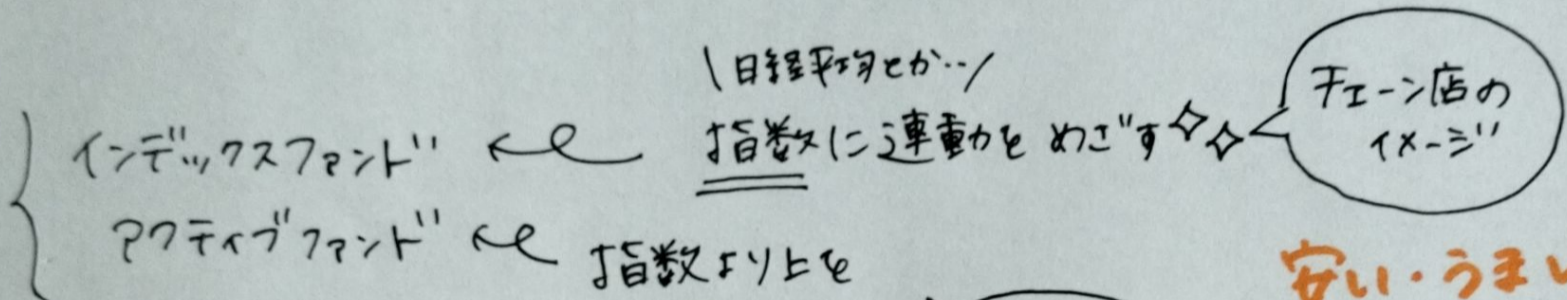 \日経平均とか…/
インデックスファンド ← 指数に連動をめざす
チェーン店の
イメージ
アクティブファンド ← 指数より上を
安い・うまい